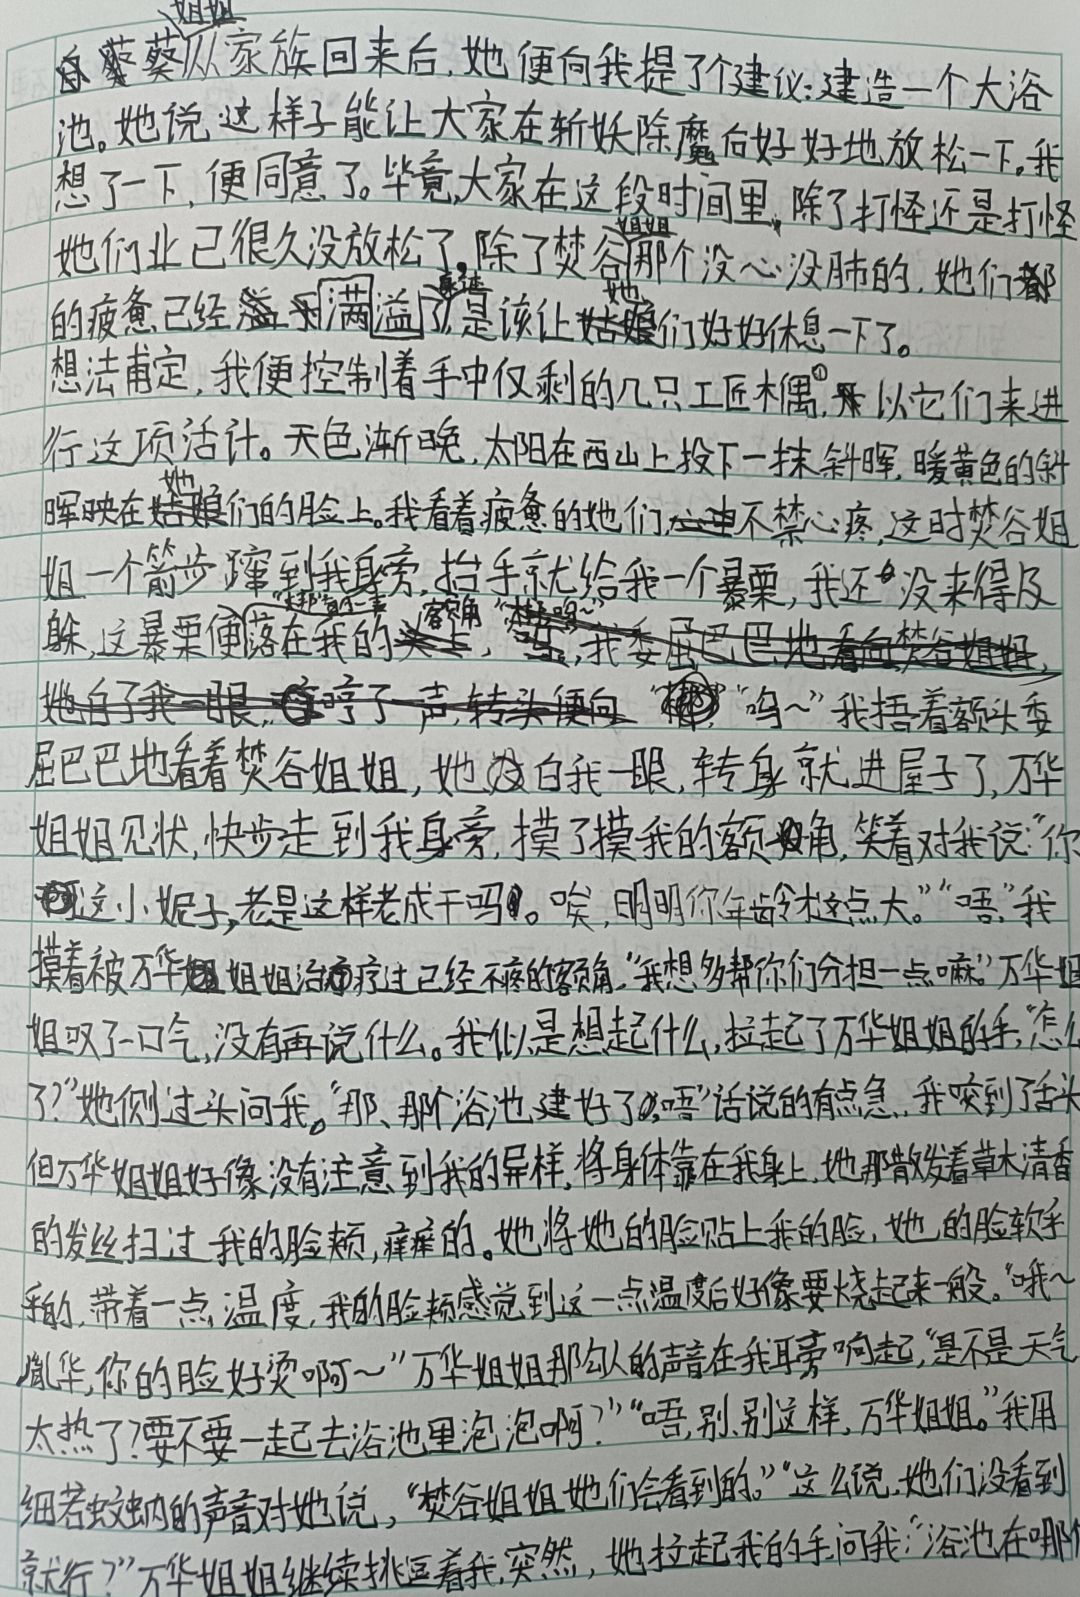 姐姐
自蔡葵从家族回来后,她便向我提了个建议:建造一个大浴
池。她说这样子能让大家在斩妖除魔后好好地放松一下。我
想了一下,便同意了。毕竟,大家在这段时间里,除了打怪还是打怪
姐姐
她们业已很久没放松了。除了焚谷那个没心没肺的,她们都
她
的疲惫已经满溢了,是该让姑娘们好好休息一下了。
想法甫定,我便控制着手中仅剩的几只工匠木偶①,以它们来进
行这项活计。天色渐晚,太阳在西山上投下一抹斜晖,暖黄色的斜
她
晖映在姑娘们的脸上。我看着疲惫的她们,心中不禁心疼,这时焚谷姐
姐一个箭步蹿到我身旁,抬手就给我一个暴栗,我还没来得及
额角
躲,这暴栗便落在我的头上,我委屈巴巴地看向焚谷姐姐,
她白了我一眼,哼了一声,转头便向 “呜~”我捂着额头委
屈巴巴地看着焚谷姐姐,她白我一眼,转身就进屋子了,万华
姐姐见状,快步走到我身旁,摸了摸我的额角,笑着对我说:“你
这小妮子,老是这样老成干吗。唉,明明你年龄才这点大。”“唔,”我
摸着被万华姐姐治疗过已经不疼的额角,“我想多帮你们分担一点嘛。”万华姐
姐叹了一口气,没有再说什么。我似是想起什么,拉起了万华姐姐的手,“怎么
了?”她侧过头问我。“那、那个浴池建好了,唔”话说的有点急,我咬到了舌头
但万华姐姐好像没有注意到我的异样,将身体靠在我身上,她那散发着草木清香
的发丝扫过我的脸颊,痒痒的。她将她的脸贴上我的脸,她的脸软乎
乎的,带着一点温度,我的脸颊感觉到这一点温度后好像要烧起来一般。“哦~
胤华,你的脸好烫啊~”万华姐姐那勾人的声音在我耳旁响起,“是不是天气
太热了?要不要一起去浴池里泡泡啊?”“唔,别、别这样,万华姐姐。”我用
细若蚊蚋的声音对她说,“焚谷姐姐她们会看到的。”“这么说,她们没看到
就行?”万华姐姐继续挑逗着我,突然,她拉起我的手问我:“浴池在哪